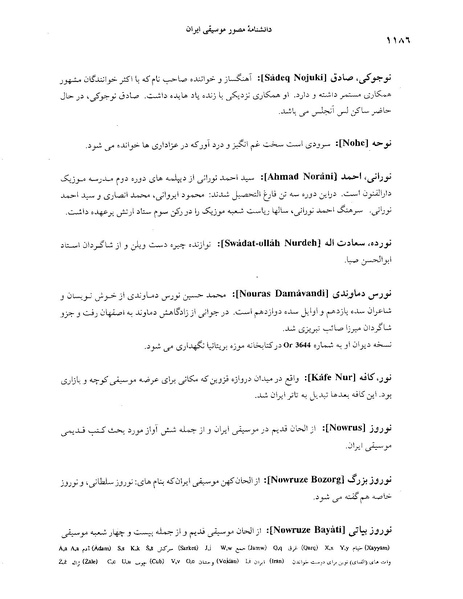 دانشنامهٔ مصور موسیقی ایران
۱۱۸۶
نوجوکی، صادق [Sâdeq Nojuki]: آهنگساز و خواننده صاحب نام که با اکثر خوانندگان مشهور
همکاری مستمر داشته و دارد. او همکاری نزدیکی با زنده یاد هایده داشت. صادق نوجوکی، در حال
حاضر ساکن لس آنجلس می باشد.
نوحه [Nohe]: سرودی است سخت غم انگیز و درد آور که در عزاداری ها خوانده می شود.
نورانی، احمد [Ahmad Norâni]: سید احمد نورانی از دیپلمه های دوره دوم مدرسه موزیک
دارالفنون است. دراین دوره سه تن فارغ التحصیل شدند: محمود ایروانی، محمد انصاری و سید احمد
نورانی. سرهنگ احمد نورانی، سالها ریاست شعبه موزیک را در رکن سوم ستاد ارتش برعهده داشت.
نورده، سعادت اله [Swâdat-ollâh Nurdeh]: نوازنده چیره دست ویلن و از شاگردان استاد
ابوالحسن صبا.
نورس دماوندی [Nouras Damâvandi]: محمد حسین نورس دماوندی از خوش نویسان و
شاعران سده یازدهم و اوایل سده دوازدهم است. در جوانی از زادگاهش دماوند به اصفهان رفت و جزو
شاگردان میرزا صائب تبریزی شد.
نسخه دیوان او به شماره Or 3644 در کتابخانه موزه بریتانیا نگهداری می شود.
نور، کافه [Kâfe Nur]: واقع در میدان دروازه قزوین که مکانی برای عرضه موسیقی کوچه و بازاری
بود. این کافه بعدها تبدیل به تاتر ایران شد.
نوروز [Nowrus]: از الحان قدیم در موسیقی ایران و از جمله شش آواز مورد بحث کتب قدیمی
موسیقی ایران.
نوروز بزرگ [Nowruze Bozorg]: از الحان کهن موسیقی ایران که بنام های: نوروز سلطانی، و نوروز
خاصه هم گفته می شود.
نوروز بیاتی [Nowruze Bayâti]: از الحان موسیقی قدیم و از جمله بیست و چهار شعبه موسیقی
A,a آدم (Adam) S,s K,k سرکش (Sarkeš) J,j W,w جمع (Jamw) O,q غرق (Qarq) X,x V,y خیام (Xayyâm)
Z,ž ژاله (Žâle) C,c U,u چوب (Čub) V,v O,o وجدان (Vojdân) I,i ایران (Irân)